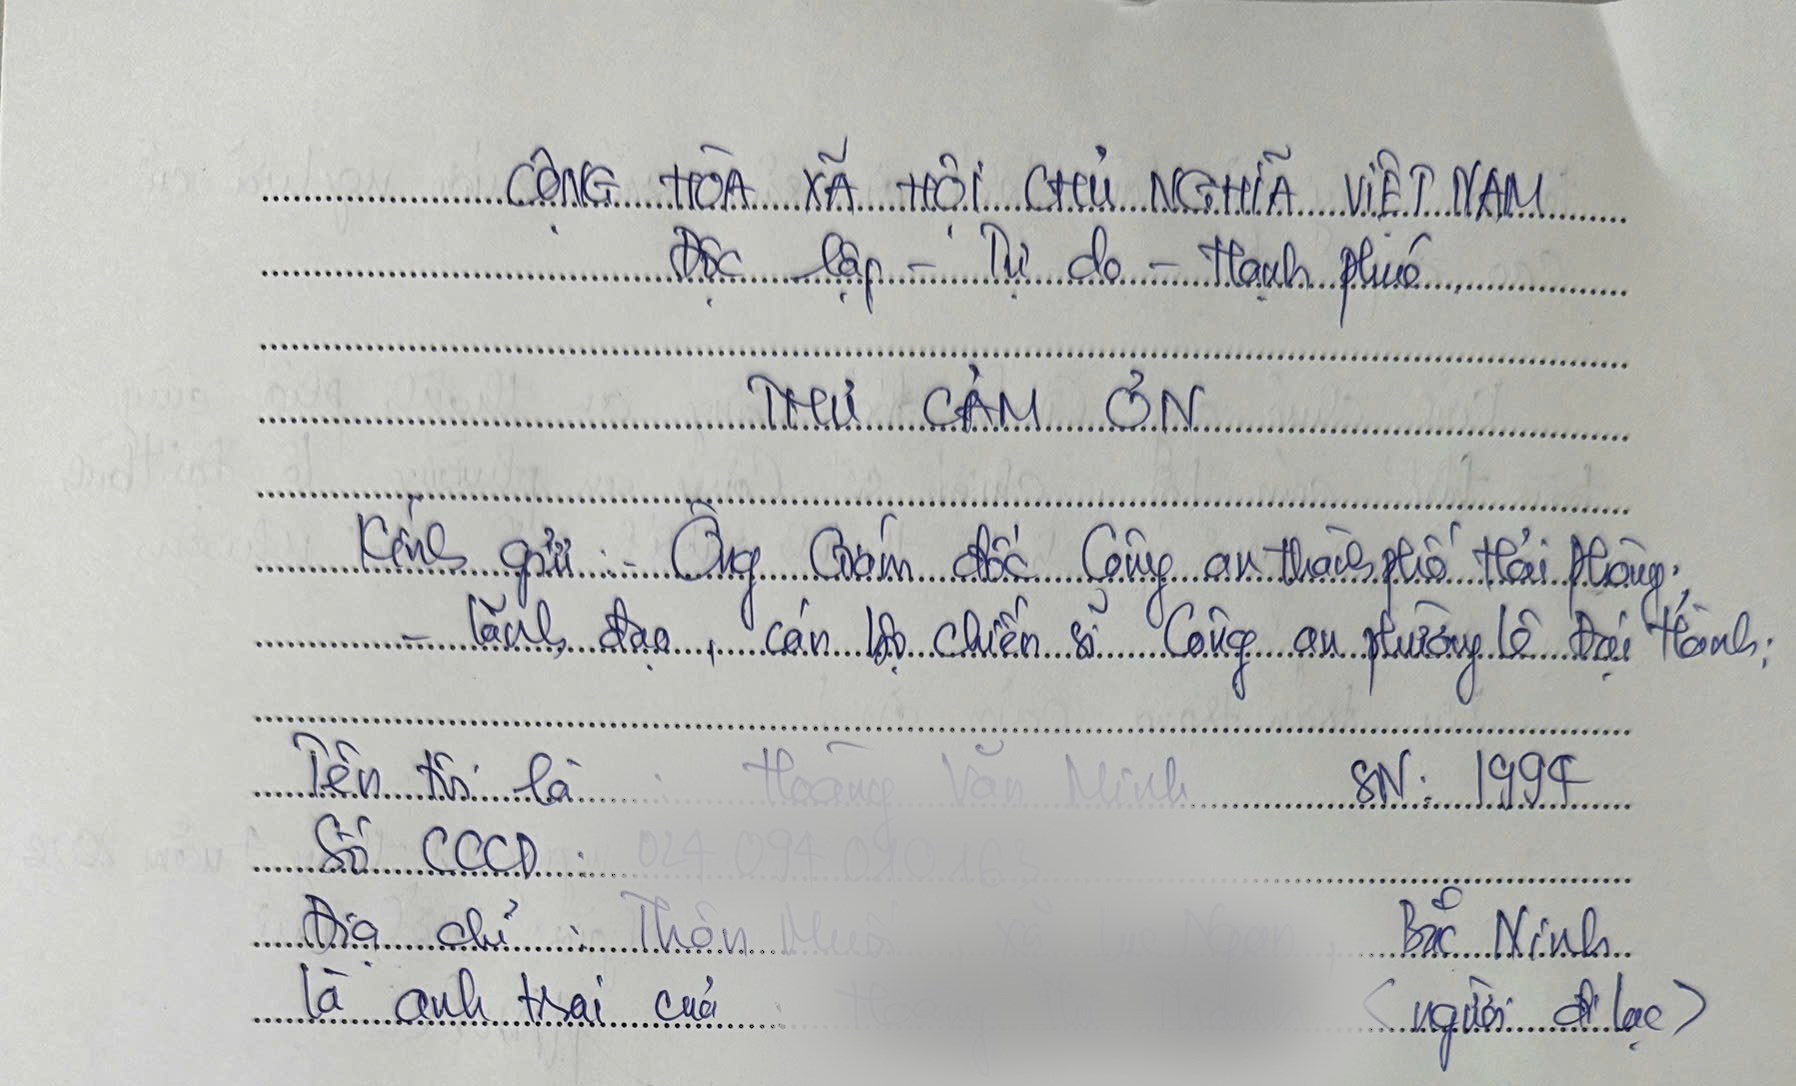 CỘNG HÒA XÃ HỘI CHỦ NGHĨA VIỆT NAM
Độc lập - Tự do - Hạnh phúc
THƯ CẢM ƠN
Kính gửi: - Ông Giám đốc Công an thành phố Hải Phòng;
- Lãnh đạo, cán bộ chiến sĩ Công an phường Lê Đại Hành;
Tên tôi là : SN: 1994
Số CCCD :
Địa chỉ : Thôn Bắc Ninh
là anh trai của (người đi lạc)